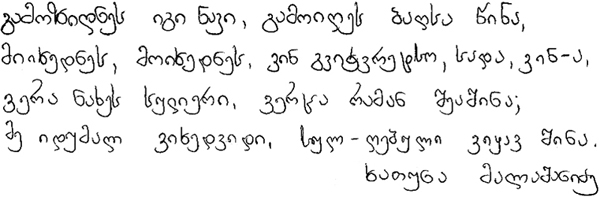 გამოზიდნეს იგი ნავი, გამოიღეს ბაღსა წინა,
მიიხედნეს, მოიხედნეს, ვინ გვიჭვრეტსო, სადა, ვინ-ა,
ვერა ნახეს სულიერი, ვერცა რამან შეაშინა;
მე იდუმალ ვიხედვიდი, სულ-ღებული ვიყავ შინა.
ხათუნა